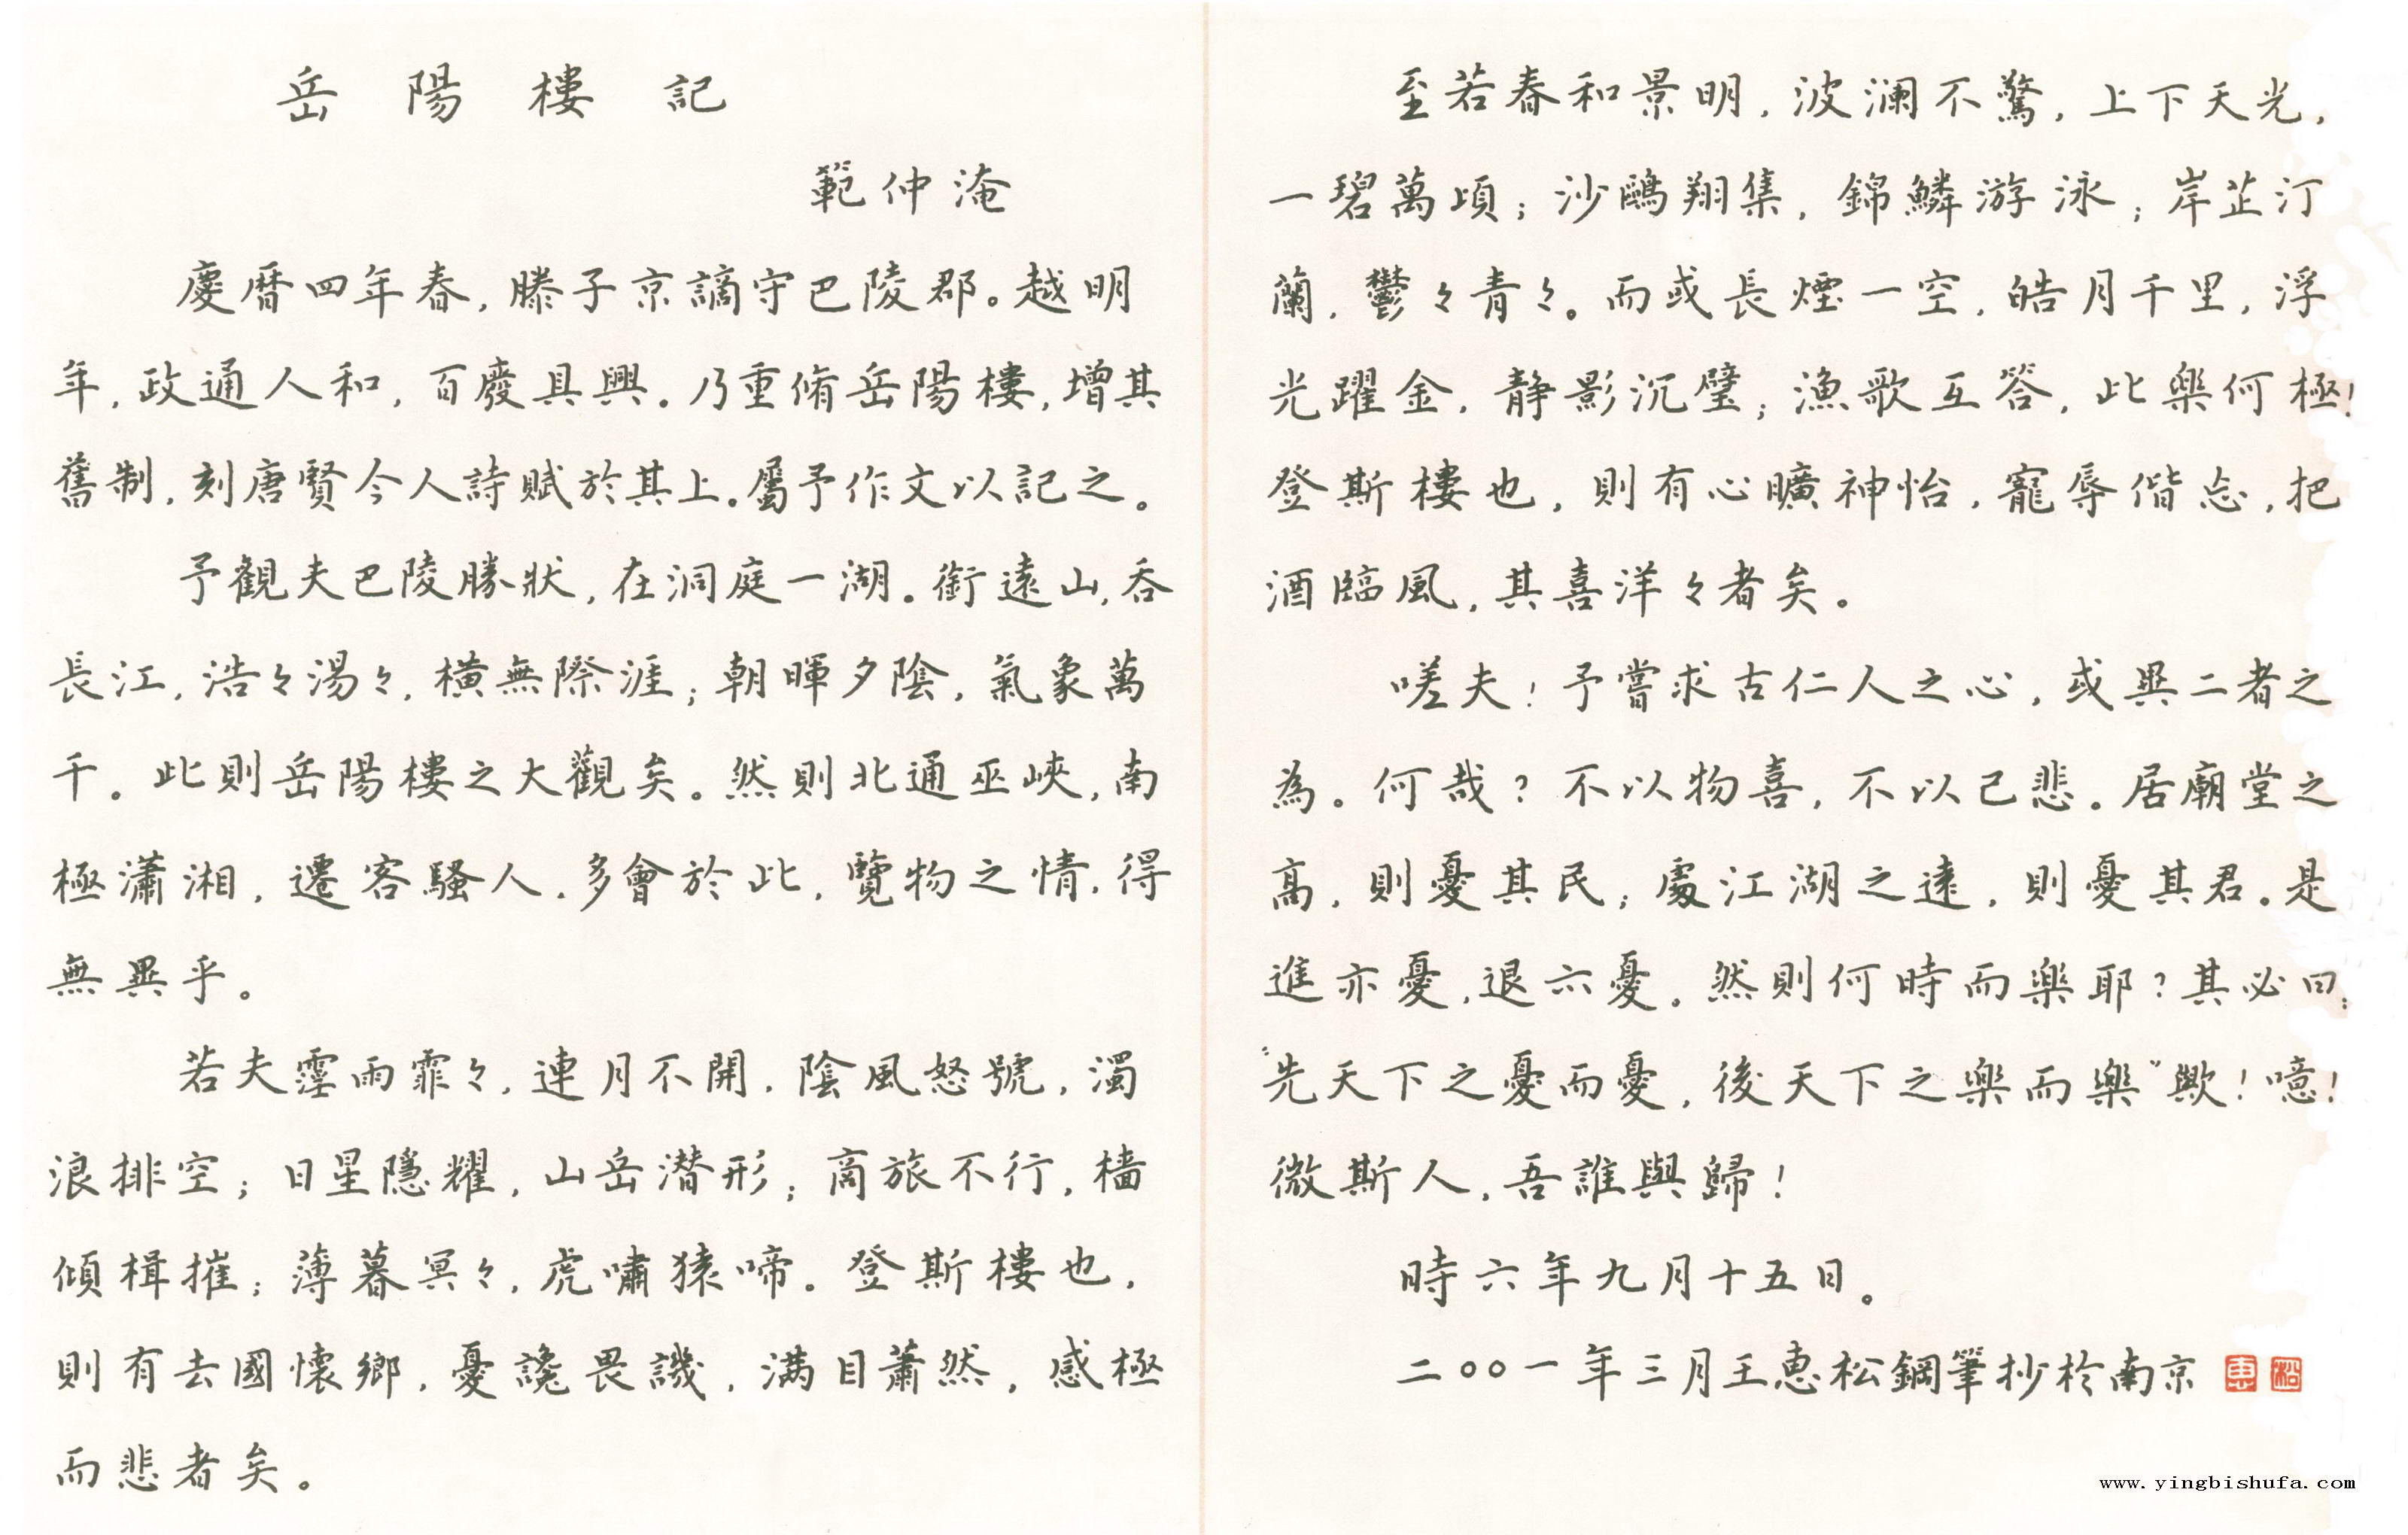 岳陽樓記
範仲淹
慶曆四年春,滕子京謫守巴陵郡。越明
年,政通人和,百廢具興。乃重脩岳陽樓,增其
舊制,刻唐賢今人詩賦於其上。屬予作文以記之。
予觀夫巴陵勝狀,在洞庭一湖。銜遠山,吞
長江,浩々湯々,橫無際涯;朝暉夕陰,氣象萬
千。此則岳陽樓之大觀矣。然則北通巫峽,南
極瀟湘,遷客騷人,多會於此,覽物之情,得
無異乎。
若夫霪雨霏々,連月不開,陰風怒號,濁
浪排空;日星隱耀,山岳潛形;商旅不行,檣
傾楫摧;薄暮冥々,虎嘯猿啼。登斯樓也,
則有去國懷鄉,憂讒畏譏,满目蕭然,感極
而悲者矣。
至若春和景明,波澜不驚,上下天光,
一碧萬頃;沙鷗翔集,錦鱗游泳;岸芷汀
蘭,鬱々青々。而或長煙一空,皓月千里,浮
光躍金,静影沉璧;漁歌互答,此樂何極!
登斯樓也,則有心曠神怡,寵辱偕忘,把
酒臨風,其喜洋々者矣。
嗟夫!予嘗求古仁人之心,或異二者之
為。何哉?不以物喜,不以己悲。居廟堂之
高,則憂其民;處江湖之遠,則憂其君。是
進亦憂,退亦憂。然則何時而樂耶?其必曰:
"先天下之憂而憂,後天下之樂而樂"歟!噫!
微斯人,吾誰與歸!
時六年九月十五日。
二〇〇一年三月王惠松鋼筆抄於南京 惠 松
www.yingbishufa.com